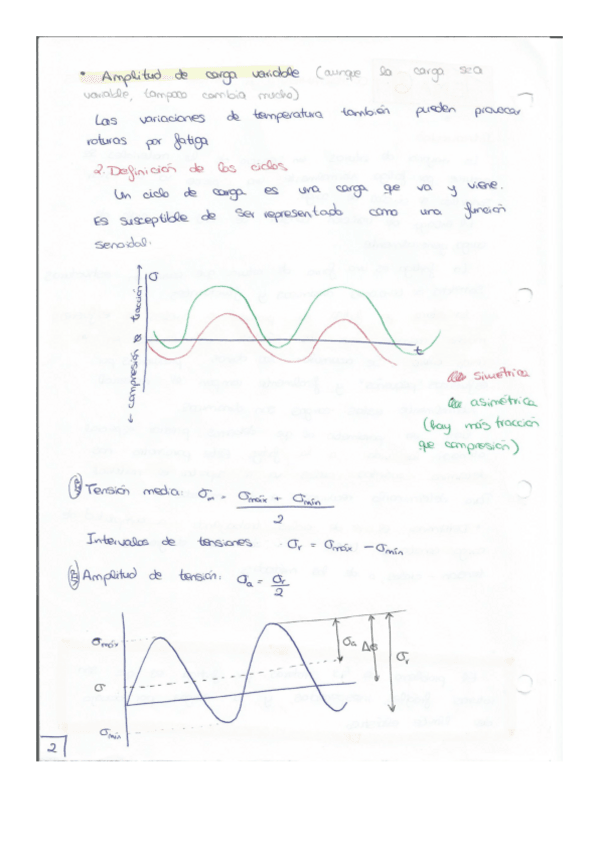 • Amplitud de carga variable (aunque la carga sea
variable, tampoco cambia mucho)
Las variaciones de temperatura también pueden provocar
roturas por fatiga
2. Definición de los ciclos
Un ciclo de carga es una carga que va y viene.
Es susceptible de ser representado como una función
senoidal.
σ
← compresión tracción →
t
simétrica
asimétrica
(hay más tracción
que compresión)
Tensión media: σm = σmáx + σmín
2
Intervalos de tensiones σr = σmáx - σmín
Amplitud de tensión: σa = σr
2
σmáx
σa
Δσ
σr
σ
σmín
2